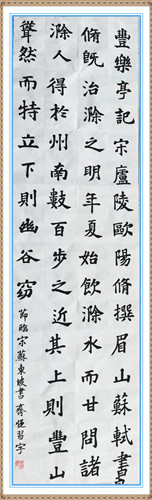 豐樂亭記宋廬陵歐陽脩撰眉山蘇軾書
脩既治滁之明年夏始飲滁水而甘問諸
滁人得於州南數百步之近其上則豐山
聳然而特立下則幽谷窈
節臨宋蘇東坡書 齊恒習字